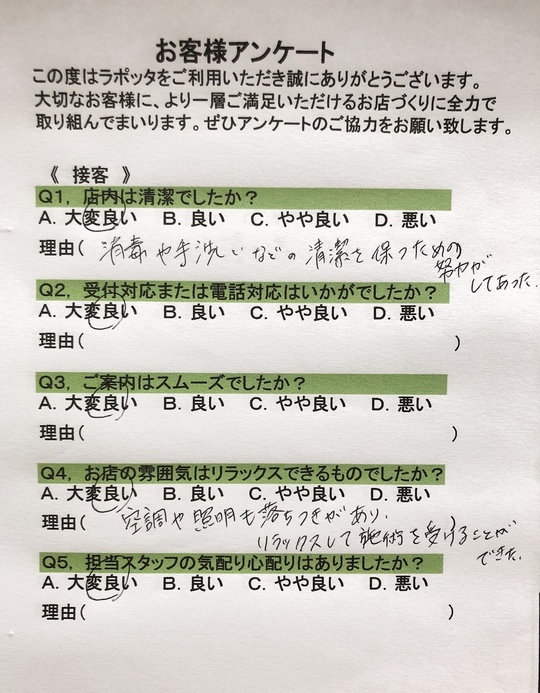 お客様アンケート
この度はラポッタをご利用いただき誠にありがとうございます。
大切なお客様に、より一層ご満足いただけるお店づくりに全力で
取り組んでまいります。ぜひアンケートのご協力をお願い致します。
《 接客 》
Q1, 店内は清潔でしたか？
A. 大変良い B. 良い C. やや良い D. 悪い
理由( 消毒や手洗いなどの清潔を保つための
努力が
してあった.
Q2, 受付対応または電話対応はいかがでしたか？
A. 大変良い B. 良い C. やや良い D. 悪い
理由( )
Q3, ご案内はスムーズでしたか？
A. 大変良い B. 良い C. やや良い D. 悪い
理由( )
Q4, お店の雰囲気はリラックスできるものでしたか？
A. 大変良い B. 良い C. やや良い D. 悪い
理由( 空調や照明も落ちつきがあり. )
リラックスして施術を受けることが
できた.
Q5, 担当スタッフの気配り心配りはありましたか？
A. 大変良い B. 良い C. やや良い D. 悪い
理由( )